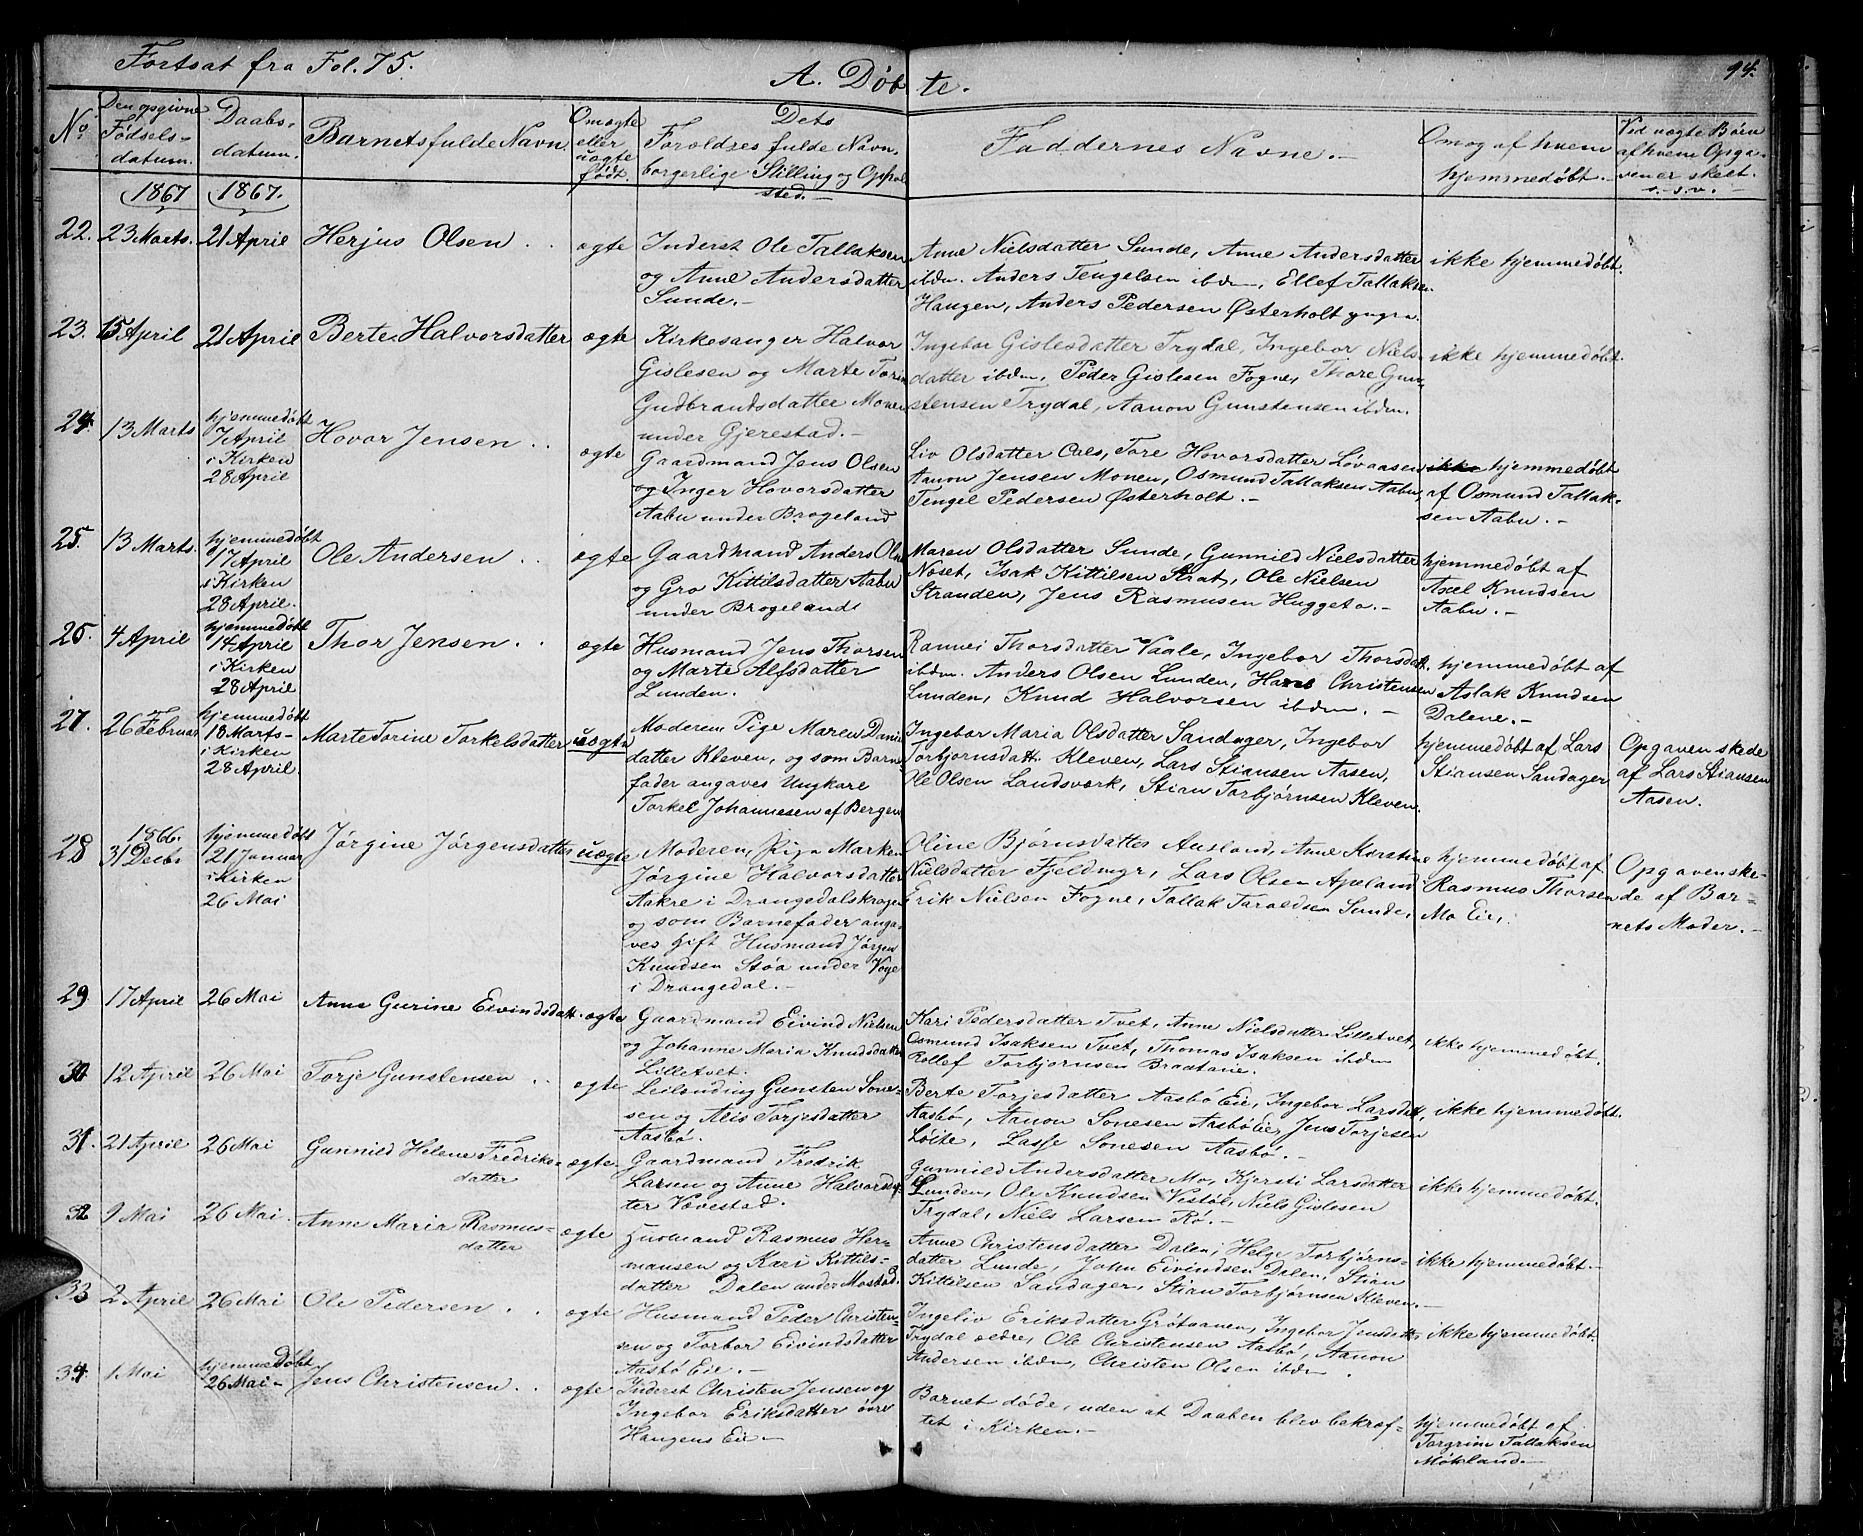 Fortsat fra Fol. 75.
A. Døbte.
94.
No
Den opgivne Fødselsdatum.
Daabsdatum.
Barnets fulde Navn
Om ægte eller uægte født.
Dets Forældres fulde Navn, borgerlige Stilling og Opholsted.-
Faddernes Navne.-
Om og af hvem hjemmedøbt.-
Ved uægte Børn af hvem Opgaven er skeet. s.s.v.-
1867
1867.
22. 23 Marts. 21 April Herjus Olsen ægte
Inderst Ole Tallaksen
og Anne Andersdatter
Sunde.-
Anne Nielsdatter Sunde, Anne Andersdatter
ibdm. Anders Tengelsen ibdm, Ellef Tallaksen
Haugen, Anders Pedersen Østerholt yngre.
ikke hjemmedøbt.
23. 15 April 21 April Berte Halvorsdatter ægte
Kirkesanger Halvor
Gislesen og Marte Torine
Gudbrandsdatter Monen
under Gjerestad.-
Ingebor Gislesdatter Trydal, Ingebor Niels-
datter ibdm, Peder Gislesen Fogne, Thore Gun-
stensen Trydal, Aanon Gunstensen ibdm.
ikke hjemmedøbt.
24. 13 Marts
hjemmedøbt
7 April
i Kirken
28 April
Hovor Jensen ægte
Gaardmand Jens Olsen
og Inger Hovorsdatter
Aabu under Brøgeland
Liv Olsdatter Caes, Tore Hovorsdatter Løvaasen
Aanon Jensen Monen, Osmund Tallaksen Aabu,
Tengel Pedersen Østerholt.-
ikke hjemmedøbt
af Osmund Tallak-
sen Aabu.-
25. 13 Marts.
hjemmedøbt
17 April
i Kirken
28 April.
Ole Andersen ægte
Gaardmand Anders Olsen
og Gro Kittilsdatter Aabu
under Brøgeland
Maren Olsdatter Sunde, Gunnild Nielsdatter
Noset, Isak Kittilsen Strat, Ole Nielsen
Stranden, Jens Rasmusen Huggeto.-
hjemmedøbt af
Axel Knudsen
Aabu.-
26. 4 April
hjemmedøbt
14 April
i Kirken
28 April
Thor Jensen ægte
Husmand Jens Thorsen
og Marte Alfsdatter
Lunden.
Rannei Thorsdatter Vaale, Ingebor Thorsdatt.
ibdm. Anders Olsen Lunden, Hans Christensen
Lunden, Knud Halvorsen ibdm.-
hjemmedøbt af
Aslak Knudsen
Dalene.-
27. 26 Februar
hjemmedøbt
18 Marts-
i Kirken
28 April.
Marte Torine Torkelsdatter uægte
Moderen Pige Maren Daniels
datter Kleven, og som Barne-
fader angaves Ungkare
Torkel Johannesen af Bergen
Ingebor Maria Olsdatter Sandager, Ingebor
Torbjørnsdatt. Kleven, Lars Stiansen Aasen,
Ole Olsen Landsverk, Stian Torbjørnsen Kleven.
hjemmedøbt af Lars
Stiansen Sandager
Opgaven skede
af Lars Stiansen
Aasen.
28 1866. 31 Decbr
hjemmedøbt
21 Januar
i Kirken
26 Mai
Jørgine Jørgensdatter uægte
Moderen, Pige Marken
Jørgine Halvorsdatter
Aakre i Drangedalskrogen
og som Barnefader anga-
ves Gift Husmand Jørgen
Knudsen Støa under Voje
i Drangedal.-
Oline Bjørnsdatter Ausland, Anne Kirstine
Nielsdatter Fjeldmyr, Lars Olsen Apeland
Erik Nielsen Fogne, Tallak Taraldsen Sunde,
hjemmedøbt af
Rasmus Thorsen
Mo Eie,
Opgaven ske-
de af Bar-
nets Moder.-
29 17 April 26 Mai Anne Gurine Eivindsdatt. ægte
Gaardmand Eivind Nielsen
og Johanne Maria Knudsdatter
Lilletvet.
Kari Pedersdatter Tvet, Anne Nielsdatter Lilletvet,
Osmund Isaksen Tvet, Thomas Isaksen ibdm
Rollef Torbjørnsen Braatane.
ikke hjemmedøbt.
30 12 April 26 Mai Torje Gunstensen ægte
Leilending Gunsten Sone-
sen og Alis Torjesdatter
Aasbø.
Berte Torjesdatter Aasbø Eie, Ingebor Larsdatt,
Aasbø, Aanon Sonesen Aasbø Eie, Jens Torjesen
Løite, Lasse Sonesen Aasbø.-
ikke hjemmedøbt.
31. 21 April 26 Mai Gunnild Helene Fredriks-
datter ægte
Gaardmand Fredrik
Larsen og Anne Halvorsdat-
ter Vævestad.
Gunnild Andersdatter Mo, Kjersti Larsdatter
Lunden, Ole Knudsen Vestøl, Niels Gislesen
Trydal, Niels Larsen Rø.-
ikke hjemmedøbt.
32 9 Mai 26 Mai. Anne Maria Rasmus-
datter ægte
Husmand Rasmus Her-
mansen og Kari Kittils-
datter Dalen under Mostad.
Anne Christensdatter Dalen, Helge Torbjørns-
datter Lunde, John Eivindsen Dalen, Stian
Kittilsen Sandager, Stian Torbjørnsen Kleven.-
ikke hjemmedøbt.-
33 2 April 26 Mai Ole Pedersen ægte
Husmand Peder Christen-
sen og Torbor Eivindsdatter
Aasbø Eie.-
Ingeliv Eriksdatter Grøtaanen, Ingebor Jensdatt,
Trydal ældre, Ole Christensen Aasbø, Aanon
Andersen ibdm, Christen Olsen ibdm.
ikke hjemmedøbt.
34 1 Mai
hjemmedøbt
26 Mai-
Jens Christensen ægte
Inderst Christen Jensen og
Ingebor Eriksdatter øvre
Haugens Eie.-
Barnet døde, uden at Daaben blev bekræf-
tet i Kirken.-
hjemmedøbt af
Torgrim Tallaksen
Møkland.-